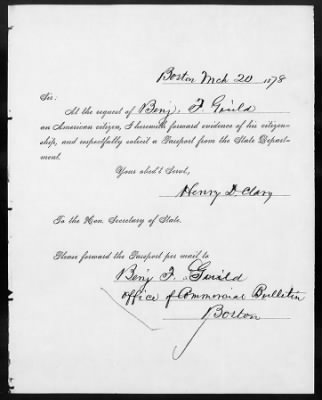 Boston Mch 20 1878
Sir:
At the request of Benj. F Guild
an American citizen, I herewith forward evidence of his citizen-
ship, and respectfully solicit a Passport from the State Depart-
ment.
Your obed't Servt,
Henry D. Clary
To the Hon. Secretary of State.
Please forward the Passport per mail to
Benj F. Guild
Office of Commercial Bulletin
Boston